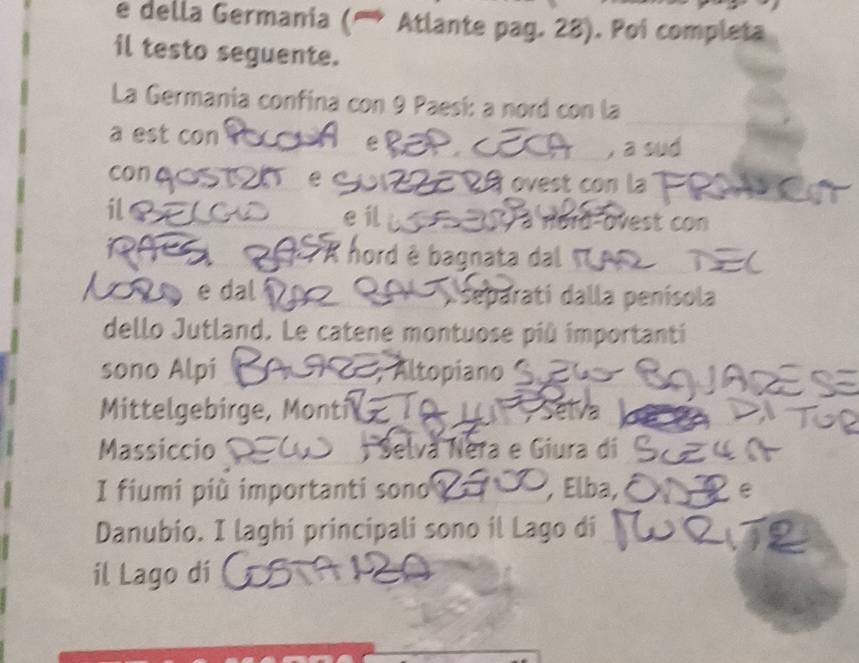 e della Germania ( Atlante pag. 28). Poi completa
il testo seguente.
La Germania confina con 9 Paesi: a nord con la
a est con POLONIA e REP. CECA, a sud
con AUSTRIA e SVIZZERA ovest con la FRANCIA
il BELGIO e il nord-ovest con
PAESI BASSI nord è bagnata dal MAR DEL
NORD e dal MAR BALTICO, separati dalla penisola
dello Jutland. Le catene montuose più importanti
sono Alpi BAVARE, Altopiano BAVARESE
Mittelgebirge, Monti Selva DI TUR
Massiccio Selva Nera e Giura di
I fiumi più importanti sono RENO, Elba, ODER e
Danubio. I laghi principali sono il Lago di MURITZ
il Lago di COSTANZA